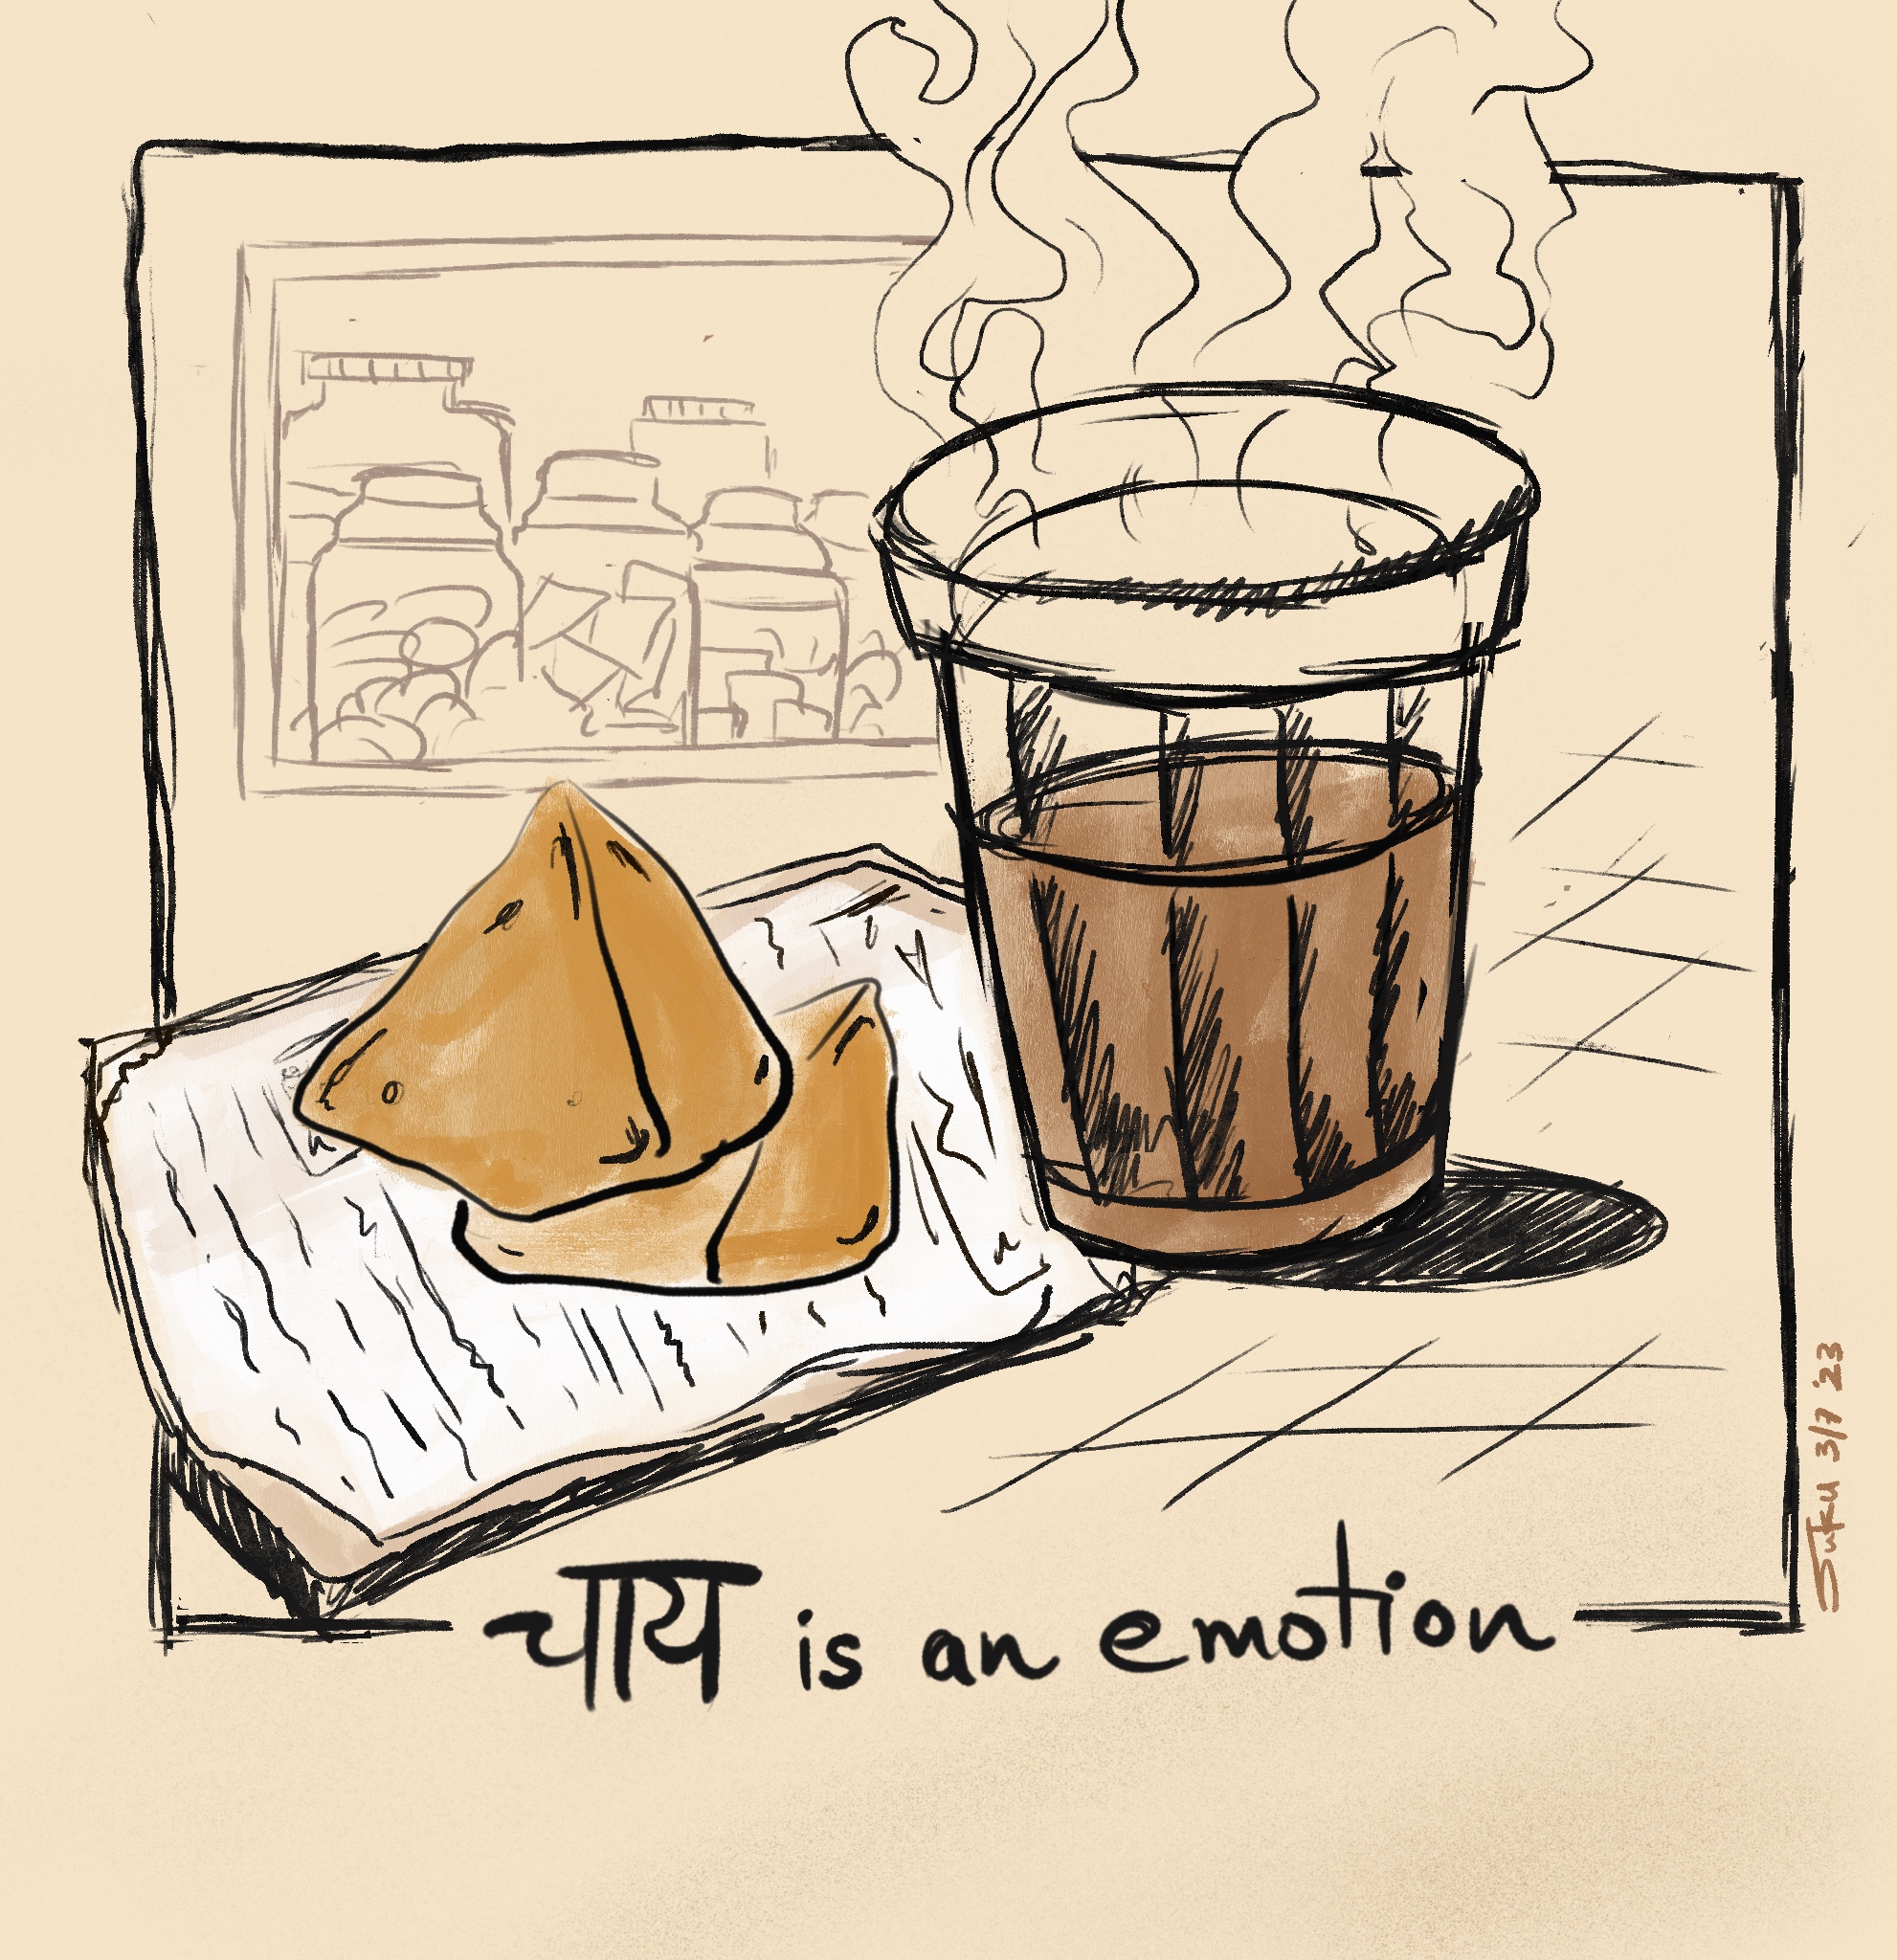 चाय is an emotion
Suku 3/7 '23